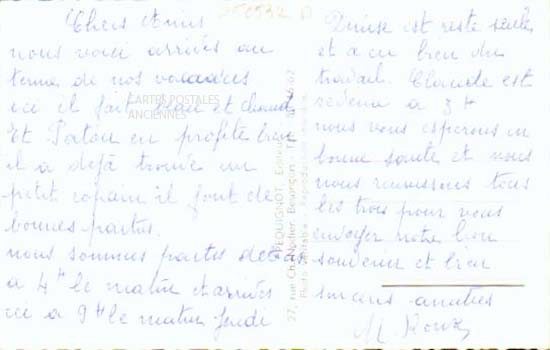 Chers Amis
nous voici arrivés au
terme de nos vacances
ici il fait beau et chaud
Et Patou en profite bien
il a dejà trouvé un
petit copain il font de
bonnes parties.
nous sommes partis de
a 4h le matin et arrivés
ici a 9h le matin Jeudi
Denise est resté seule
et a eu bien du
travail. Claude est
revenu a 3h
nous vous esperons en
bonne santé et nous
nous reunissons tous
les trois pour vous
envoyer notre bon
souvenir et bien
sincères amitiés
M Roux
CARTES POSTALES
ANCIENNES
PEQUIGNOT, Editeur
27, rue Besançon - Tél.
Reproduction